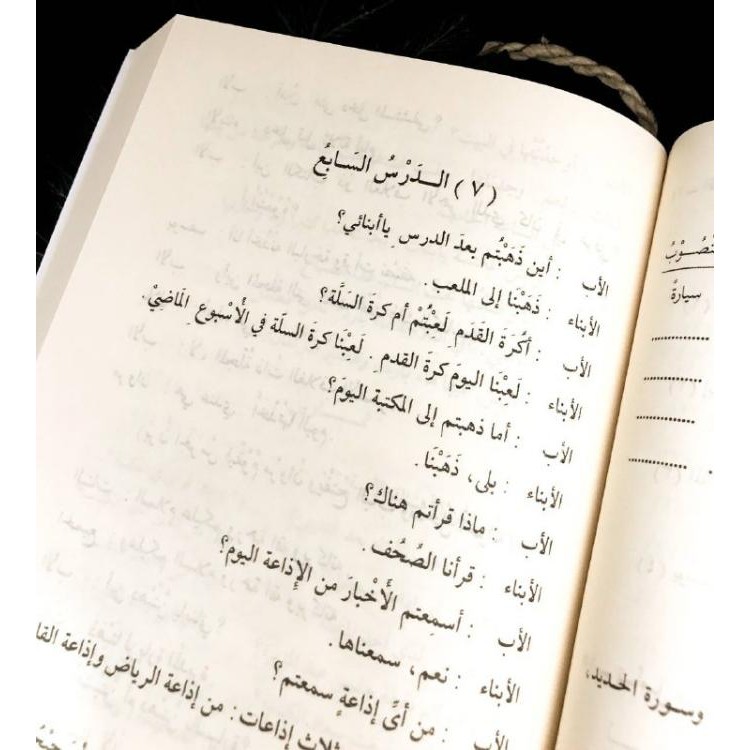 (٧) الـدَرْسُ السَـابِعُ
الأب : أين ذَهَبْتُم بعدَ الدرسِ ياأبنائي؟
الأبناء : ذَهَبْنَا إلى الملعب.
الأب : أكُرَةَ القدَمِ لَعِبْتُمْ أم كرةَ السَلَّة؟
الأبناء : لَعِبْنَا اليومَ كرةَ القدمِ. لَعِبْنَا كرةَ السلّة في الأُسْبوعِ الماضِيْ.
الأب : أما ذهبتم إلى المكتبة اليومَ؟
الأبناء : بلى، ذَهَبْنَا.
الأب : ماذا قرأتم هناك؟
الأبناء : قرأنا الصُحُف.
الأب : أسمِعتم الأَخْبارَ من الإذاعة اليوم؟
الأبناء : نعم، سمعناها.
الأب : من أيِّ إذاعةٍ سمعتم؟
ثلاث إذاعات : من إذاعة الرياض وإذاعة
سيارةً
وسورة الحديد،